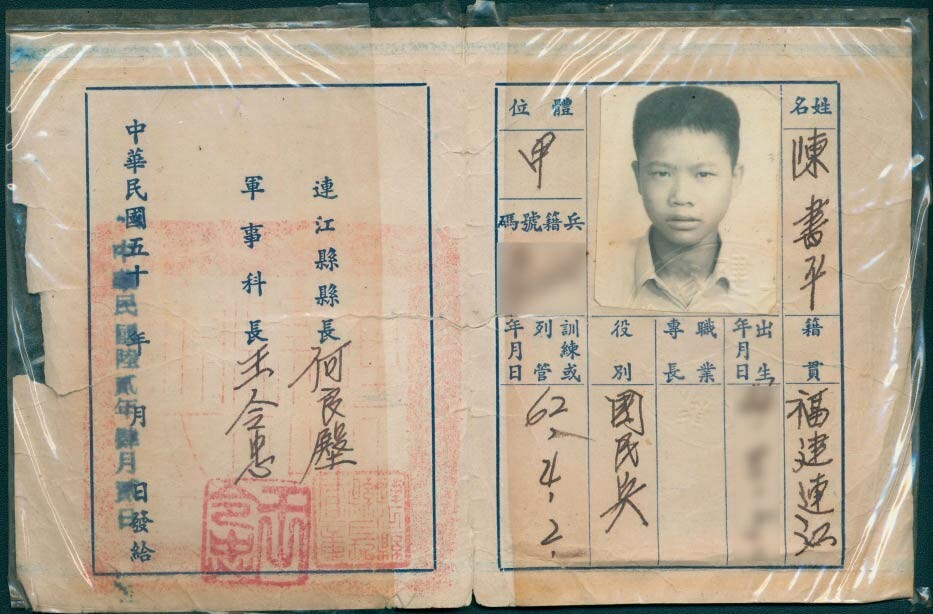 姓名
陳書平
籍貫
福建連江
出生年月日
職業專長
役別
國民兵
體位
甲
兵籍號碼
訓練或列管年月日
62.4.2.
連江縣縣長何良
軍事科長王令忠
中華民國五十 年 月 日發給
中華民國陸貳年肆月貳日